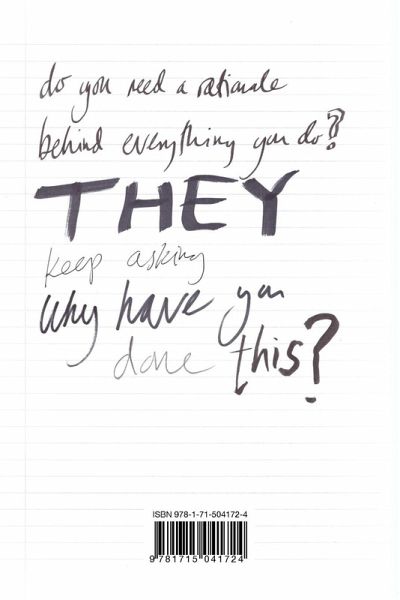 do you need a rationale
behind everything you do?
THEY
keep asking
why have you
done this?
ISBN 978-1-71-504172-4
9 781715 041724